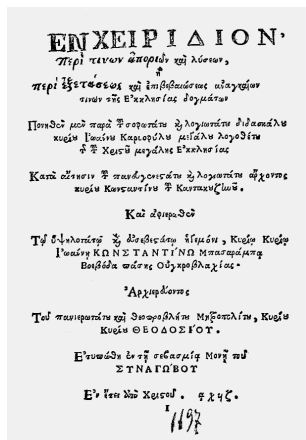 ΕΝΧΕΙΡΙΔΙΟΝ·
Περί τινων ἀποριῶν καὶ λύσεων,
ἢ
περὶ ἐξετάσεως καὶ ἐπιβεβαιώσεως ἀναγκαίων
τινων τῆς Εκκλησίας δογμάτων
Πονηθὲν μὲν παρὰ τοῦ σοφωτάτου καὶ λογιωτάτου διδασκάλου
κυρίου Ἰωάννου Καριοφύλου μεγάλου λογοθέτου
τῆς τοῦ Χριστοῦ μεγάλης Εκκλησίας
Κατὰ αἴτησιν τοῦ πανευγενεστάτου καὶ λογιωτάτου ἄρχοντος
κυρίου Κωνσταντίνου τοῦ Καντακουζηνοῦ.
Καὶ ἀφιερωθὲν
Τῷ ὑψηλοτάτῳ καὶ εὐσεβεστάτῳ ἡγεμόνι, Κυρίῳ Κυρίῳ
Ἰωάννῃ ΚΩΝΣΤΑΝΤΙΝΩ Μπασαράμπα
Βοεβόδα πάσης Οὐγκροβλαχίας.
Ἀρχιερατεύοντος
Τοῦ πανιερωτάτου καὶ θεοπροβλήτου Μητροπολίτου, Κυρίου
Κυρίου ΘΕΟΔΟΣΙΟΥ.
Ετυπώθη ἐν τῇ σεβασμίᾳ Μονῇ τοῦ
ΣΥΝΑΓΩΒΟΥ
Εν ἔτει τοῦ Χριστοῦ. αχϟζ.